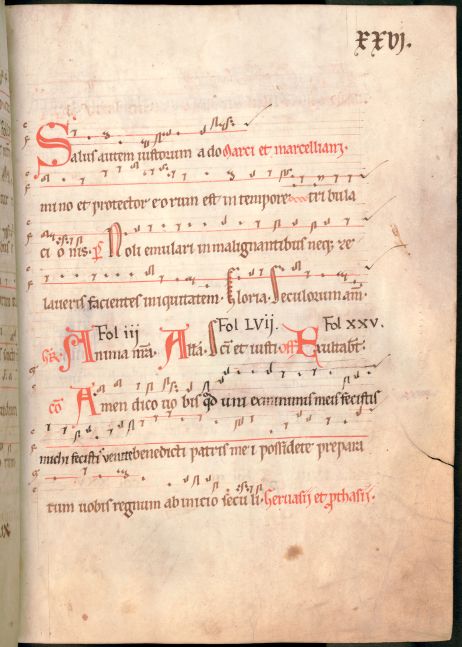 xxvj.
Salus autem iustorum a do Marci et marcelliani.
mi no et protector eorum est in tempore tri bula
ci o nis. p̄ Noli emulari in malignantibus neq; ze
laveris facientes iniquitatem. Gloria. Seculorum am̄.
Fol iij Fol LVij. Fol xxv.
Anima nr̄a. Allā. Scī et iusti. off Exultabt̄.
cō Amen dico vo bis qd uni ex minimis meis fecistis
michi fecistis venite benedicti patris me i possidete prepara
tum vobis regnum ab inicio secu li. Gervasij et p̱thasij.